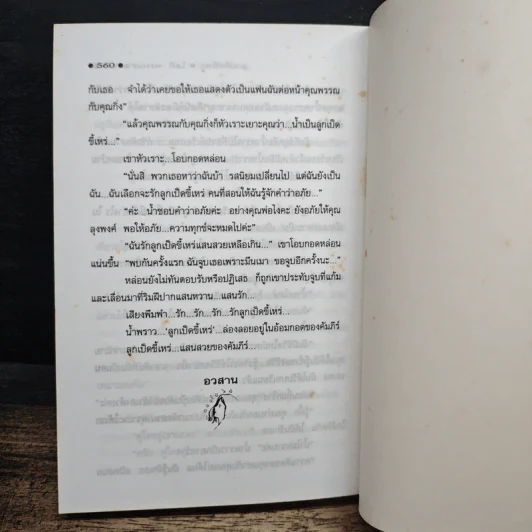 • 560 •
กับเธอ จำได้ว่าเคยขอให้เธอแสดงตัวเป็นแฟนฉันต่อหน้าคุณพรรณ
กับคุณกิ่ง"
"แล้วคุณพรรณกับคุณกิ่งก็หัวเราะเยาะคุณว่า...น้ำเป็นลูกเป็ด
ขี้เหร่..."
เขาหัวเราะ...โอบกอดหล่อน
"นั่นสิ พวกเธอหาว่าฉันบ้า รสนิยมเปลี่ยนไป แต่ฉันยังเป็น
ฉัน...ฉันเลือกจะรักลูกเป็ดขี้เหร่ คนที่สอนให้ฉันรู้จักคำว่าอภัย..."
"ค่ะ น้ำชอบคำว่าอภัยค่ะ อย่างคุณพ่อไงคะ ยังอภัยให้คุณ
ลุงพงศ์ พอให้อภัย...ความทุกข์จะหมดไปค่ะ"
"ฉันรักลูกเป็ดขี้เหร่แสนสวยเหลือเกิน..." เขาโอบกอดหล่อน
แน่นขึ้น "พบกันครั้งแรก ฉันจูบเธอเพราะมึนเมา ขอจูบอีกครั้งนะ..."
หล่อนยังไม่ทันตอบรับหรือปฏิเสธ ก็ถูกเขาประทับจูบที่แก้ม
และเลื่อนมาที่ริมฝีปากแสนหวาน...แสนรัก...
เสียงพึมพำ...รัก...รัก...รัก...รักลูกเป็ดขี้เหร่...
น้ำพราว...'ลูกเป็ดขี้เหร่'...ล่องลอยอยู่ในอ้อมกอดของคัมภีร์
ลูกเป็ดขี้เหร่...แสนสวยของคัมภีร์...
อวสาน